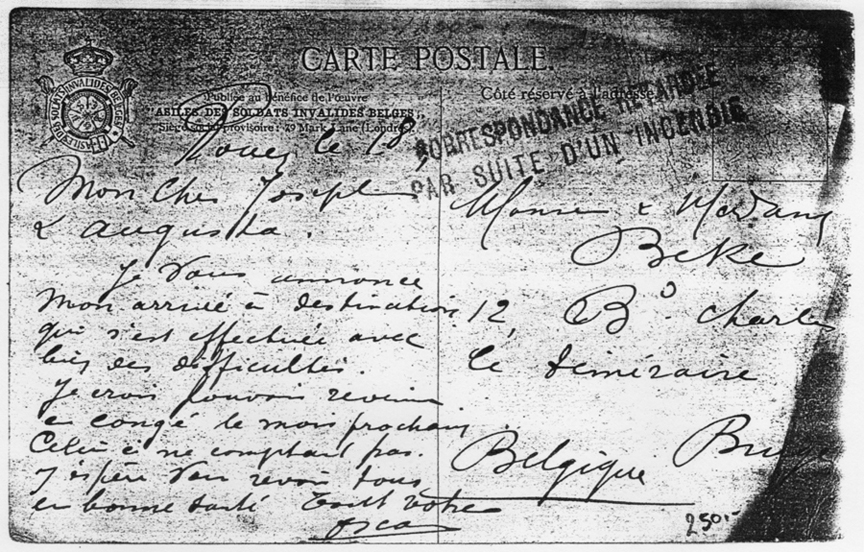 CARTE POSTALE.
Publiée au bénéfice de l'œuvre
"ASILES DES SOLDATS INVALIDES BELGES",
Siège provisoire: 79 Mark Lane (Londres).
Côté réservé à l'adresse
CORRESPONDANCE RETARDÉE
PAR SUITE D'UN INCENDIE
le 18
Mon cher Joseph
& Augusta.
Je vous annonce
mon arrivée à destination
qui s'est effectuée avec
bien des difficultés.
Je crois pouvoir revenir
en congé le mois prochain
Celui ci ne comptant pas.
J'espère vous revoir tous
en bonne santé Tout votre
Oscar
Monsieur & Madame
Beke
12, Bd Charles
le téméraire
Belgique
250